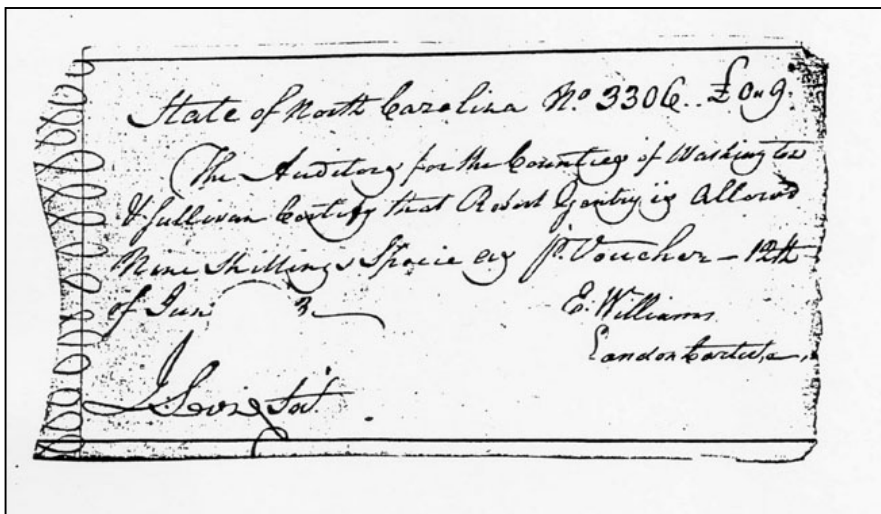 State of North Carolina No. 3306.. £0„9.
The Auditors for the Counties of Washington
& Sullivan Certify that Robert Gentry is Allowed
Nine Shillings Specie as p. Voucher – 12th
of Jun 3
E. Williams
Landon Carter